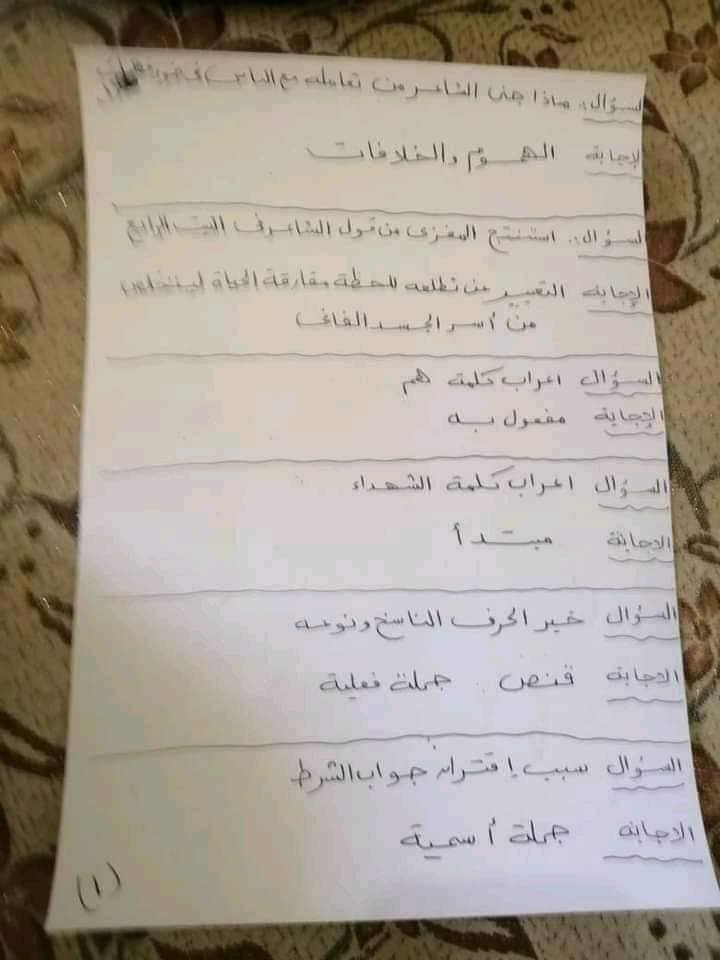 السؤال: ماذا جنى الشاعر من تعامله مع الناس في ضوء
الإجابة الهموم والخلافات
السؤال: استنتج المغزى من قول الشاعر في البيت الرابع
الإجابة التعبير عن تطلعه للحظة مفارقة الحياة ليتخلص
من أسر الجسد الفاني
السؤال اعراب كلمة هم
الإجابة مفعول به
السؤال اعراب كلمة الشهداء
الاجابة مبتدأ
السؤال خبر الحرف الناسخ ونوعه
الاجابة قنص جملة فعلية
السؤال سبب إقتران جواب الشرط
الاجابة جملة أسمية
(١)